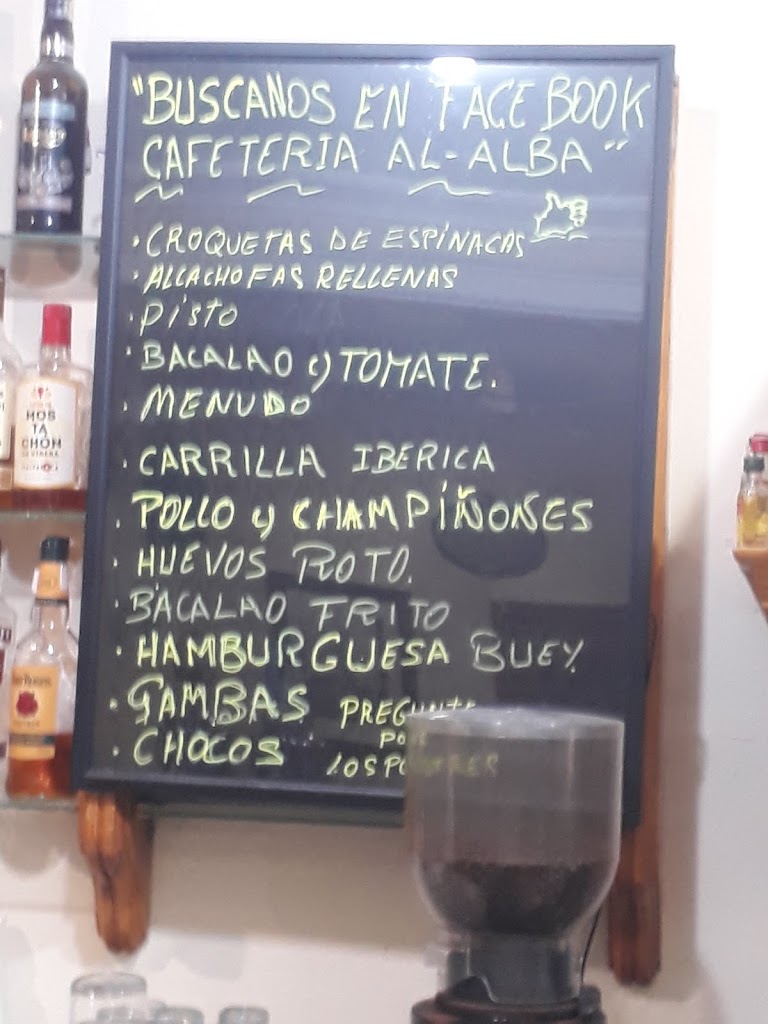 "BUSCANOS EN FACEBOOK
CAFETERIA AL-ALBA"
· CROQUETAS DE ESPINACAS
· ALCACHOFAS RELLENAS
· PISTO
· BACALAO y TOMATE.
· MENUDO
· CARRILLA IBERICA
· POLLO y CHAMPIÑONES
· HUEVOS ROTO.
· BACALAO FRITO
· HAMBURGUESA BUEY
· GAMBAS
· CHOCOS
PREGUNTE
POR
LOS POSTRES
MOS
TA
CHON